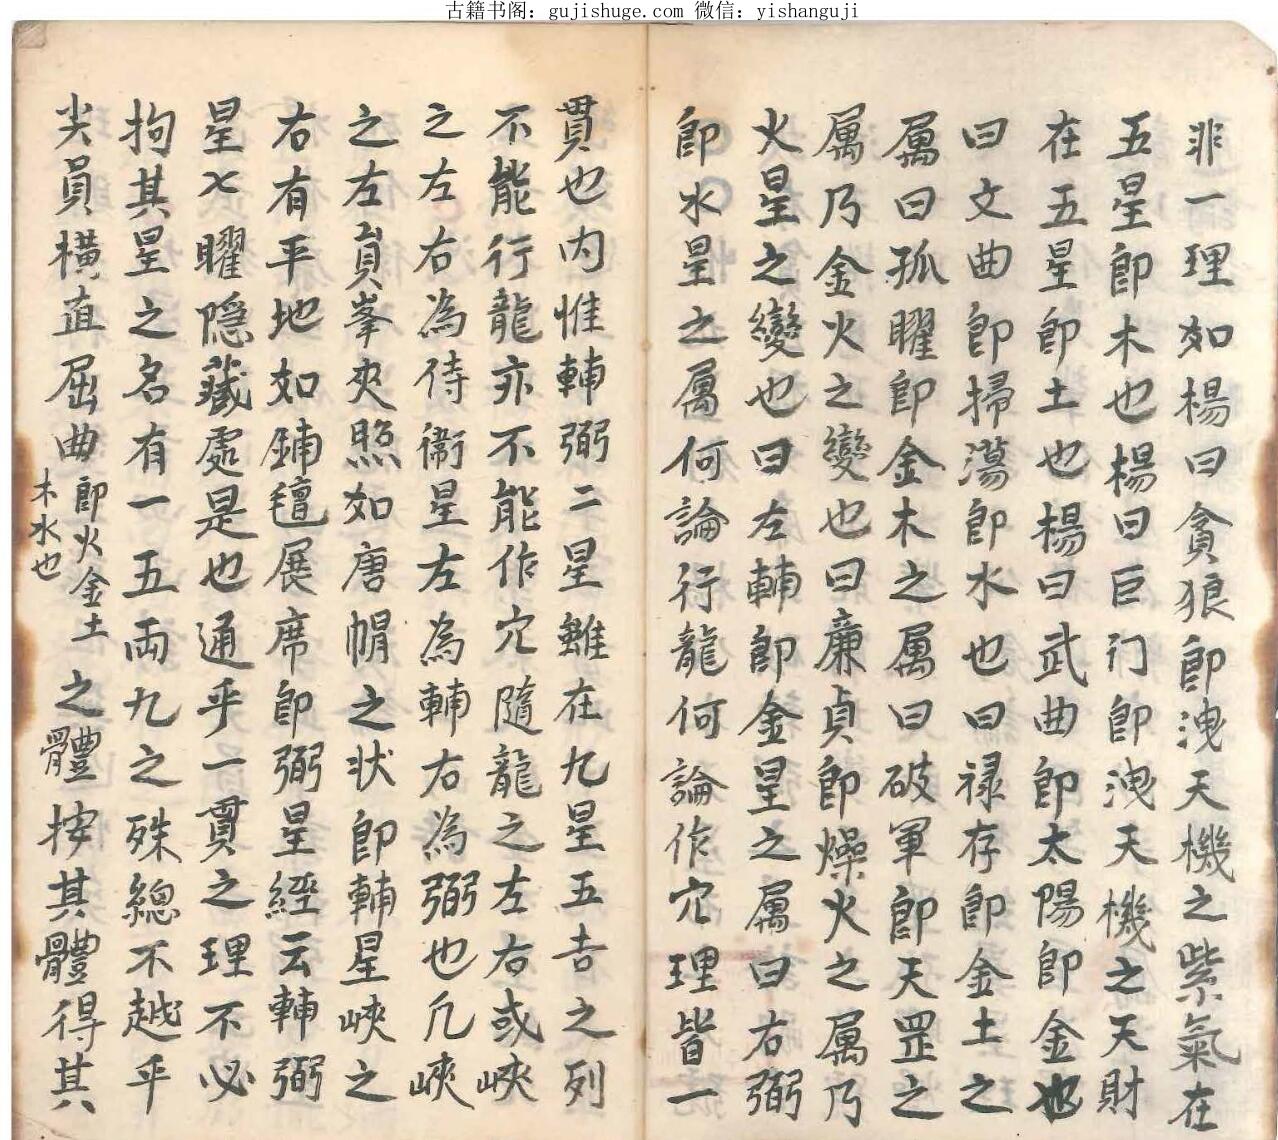 古籍书阁：gujishuge.com 微信：yishanguji
非一理如楊曰貪狼即洩天機之紫氣在
五星即木也楊曰巨门即洩天機之天財
在五星即土也楊曰武曲即太陽即金也
曰文曲即掃蕩即水也曰禄存即金土之
属曰孤曜即金木之属曰破軍即天罡之
属乃金火之變也曰廉貞即燥火之属乃
火星之變也曰左輔即金星之属曰右弼
即水星之属何論行龍何論作穴理皆一
貫也内惟輔弼二星雖在九星五吉之列
不能行龍亦不能作穴隨龍之左右或峽
之左右為侍衛星左為輔右為弼也凡峽
之左右員峯夾照如唐帽之状即輔星峽之
右有平地如鋪氊展席即弼星經云輔弼
星七曜隠藏處是也通乎一貫之理不必
拘其星之名有一五両九之殊總不越乎
尖員橫直屈曲即火金土木水也之體按其體得其